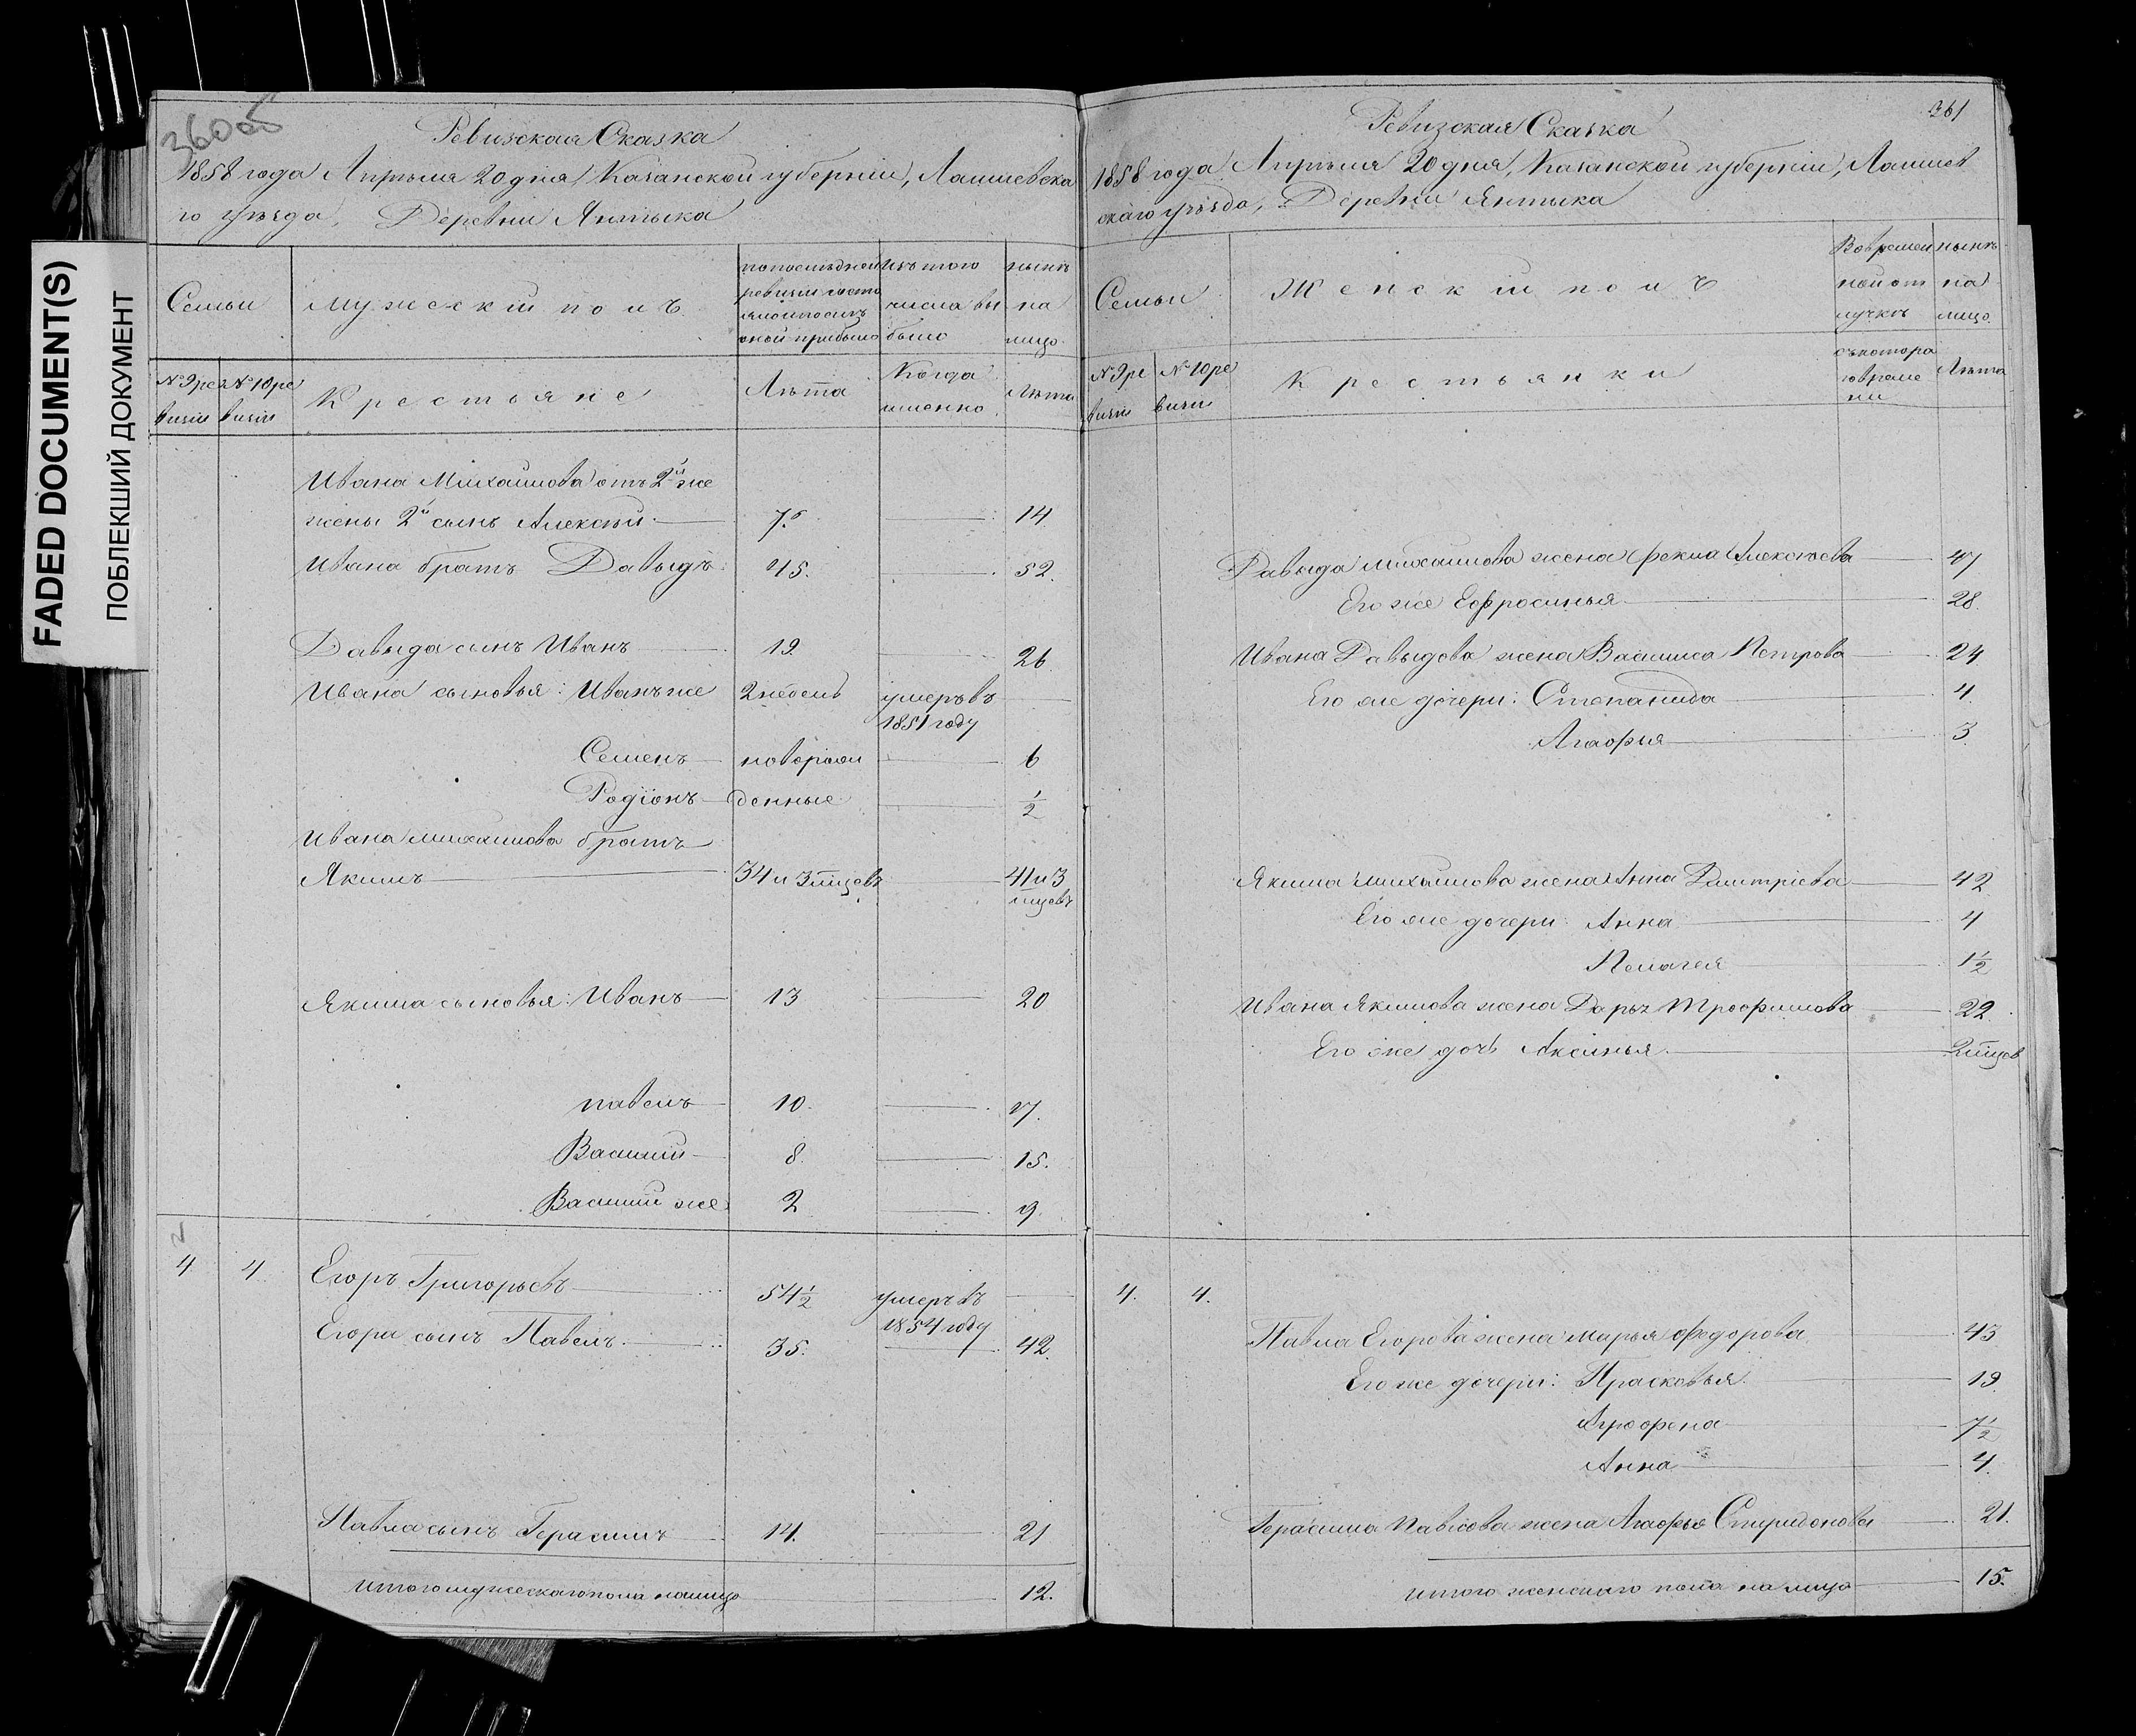 FADED DOCUMENT(S)
ПОБЛЕКШИЙ ДОКУМЕНТ
360об
Ревизская Сказка
1858 года Апрѣля 20 дня, Казанской губерніи, Лаишевска
го уѣзда, Деревни Янтыка
Семьи
Мужескій полъ
по последней
ревизіи состо
яло и послѣ
оной прибыло
Изъ того
числа вы
было
нынѣ
на
лицо
№ 9 ре
визіи
№ 10 ре
визіи
Крестьяне
Лѣта
Когда
именно
Лѣта
Ивана Михайлова отъ 2й же
жены 2й сынъ Алексѣй 7. 14
Ивана братъ Давыдъ 45. 52.
Давыда сынъ Иванъ 19. 26
Ивана сыновья: Иванъ же 2 недель умеръ въ
1851 году
Семенъ новорож 6
Родіонъ денные ½
Ивана Михайлова братъ
Якимъ 34 и 3 мѣцевъ 41 и 3
мцевъ
Якима сыновья: Иванъ 13 20
Павелъ 10. 17.
Василий 8. 15.
Василий же 2 9.
4 4 Егоръ Григорьевъ 54½ умеръ въ
1854 году
Егора сынъ Павелъ 35. 42.
Павла сынъ Герасимъ 14. 21
Итого мужескаго пола налицо 12.
361
Ревизская Сказка
1858 года Апрѣля 20 дня, Казанской губерніи, Лаишев
скаго уѣзда, Деревни Янтыка
Семьи
Женскій полъ
Во времен
ной от
лучкѣ
нынѣ
на
лицо
№ 9 ре
визіи
№ 10 ре
визіи
Крестьянки
съ котора
го време
ни
Лѣта
Давыда Михайлова жена Фекла Алексѣева 47
Его же Ефросинья 28.
Ивана Давыдова жена Василиса Петрова 24
Его же дочери: Степанида 4.
Агафья 3.
Якима Михайлова жена Анна Дмитріева 42
Его же дочери: Анна 4
Пелагея 1½
Ивана Якимова жена Дарья Трофимова 22.
Его же дочь Аксинья 2 мѣцев
4. 4.
Павла Егорова жена Марья Федорова 43
Его же дочери: Прасковья 19.
Агрофена 7½
Анна 4.
Герасима Павлова жена Агафья Спиридонова 21.
Итого женскаго пола на лицо 15.